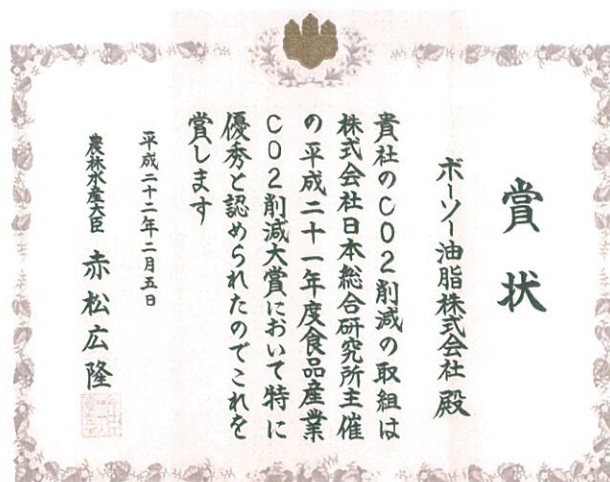 賞状
ボーソー油脂株式会社 殿
貴社のCO2削減の取組は
株式会社日本総合研究所主催
の平成二十一年度食品産業
CO2削減大賞において特に
優秀と認められたのでこれを
賞します
平成二十二年二月五日
農林水産大臣 赤松広隆